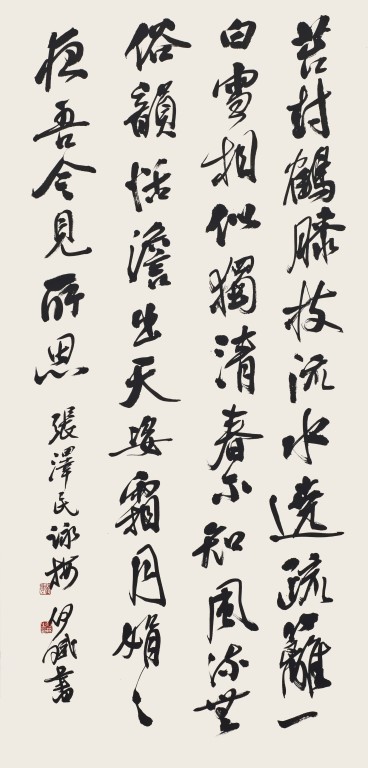 苔封鶴膝枝流水遶疏籬一
白雪相似獨清春不知風流無
俗韻恬澹出天姿霜月娟々
夜吾今見所思
張澤民詠梅 斌書